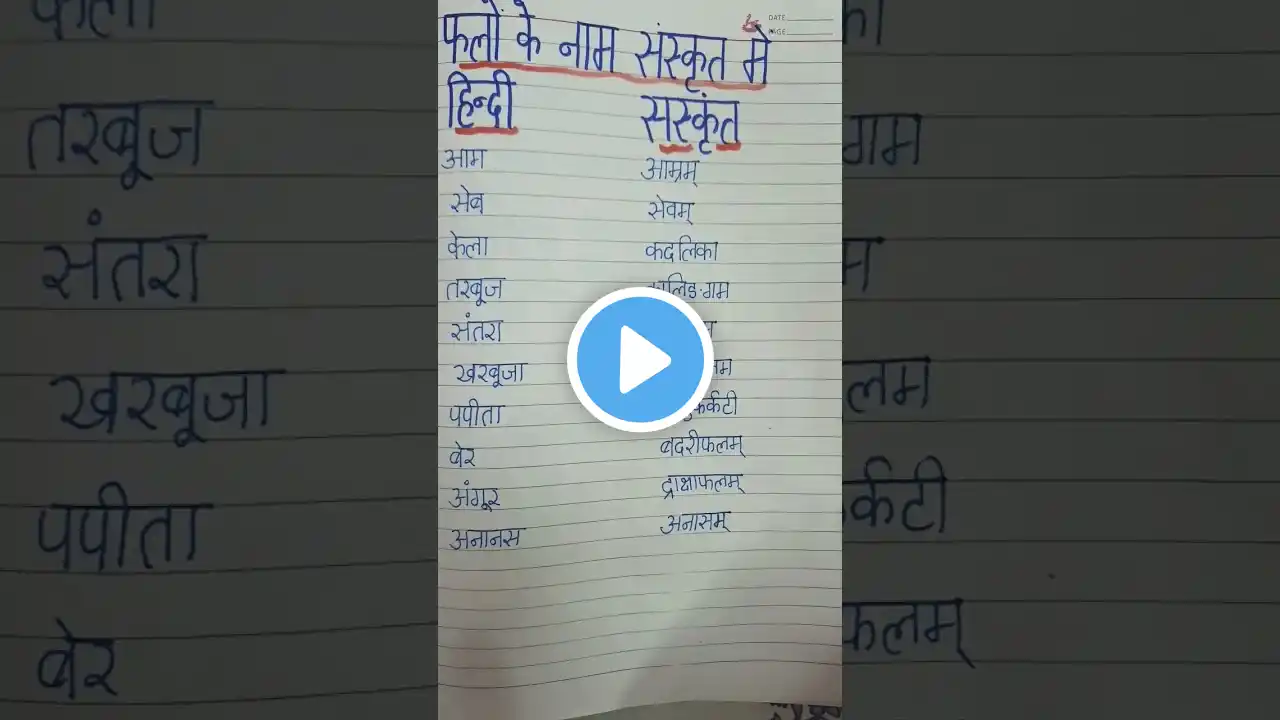 DATE
PAGE
फलों के नाम संस्कृत में
हिन्दी सस्कृंत
आम आम्रम्
सेब सेवम्
केला कदलिका
तरबूज
संतरा
खरबूजा
पपीता
बेर बदरीफलम्
अंगूर द्राक्षाफलम्
अनानस अनासम्